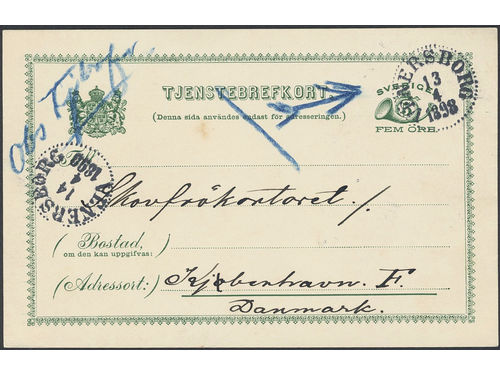 Obs
TJENSTEBREFKORT.
(Denna sida användes endast för adresseringen.)
SVERIGE
FEM ÖRE.
VENERSBORG
13
4
1898
VENERSBORG
14
4
Till
Skovfrökontoret /.
(Bostad,
om den kan uppgifvas:)
(Adressort:) Kjöbenhavn. F.
Danmark.